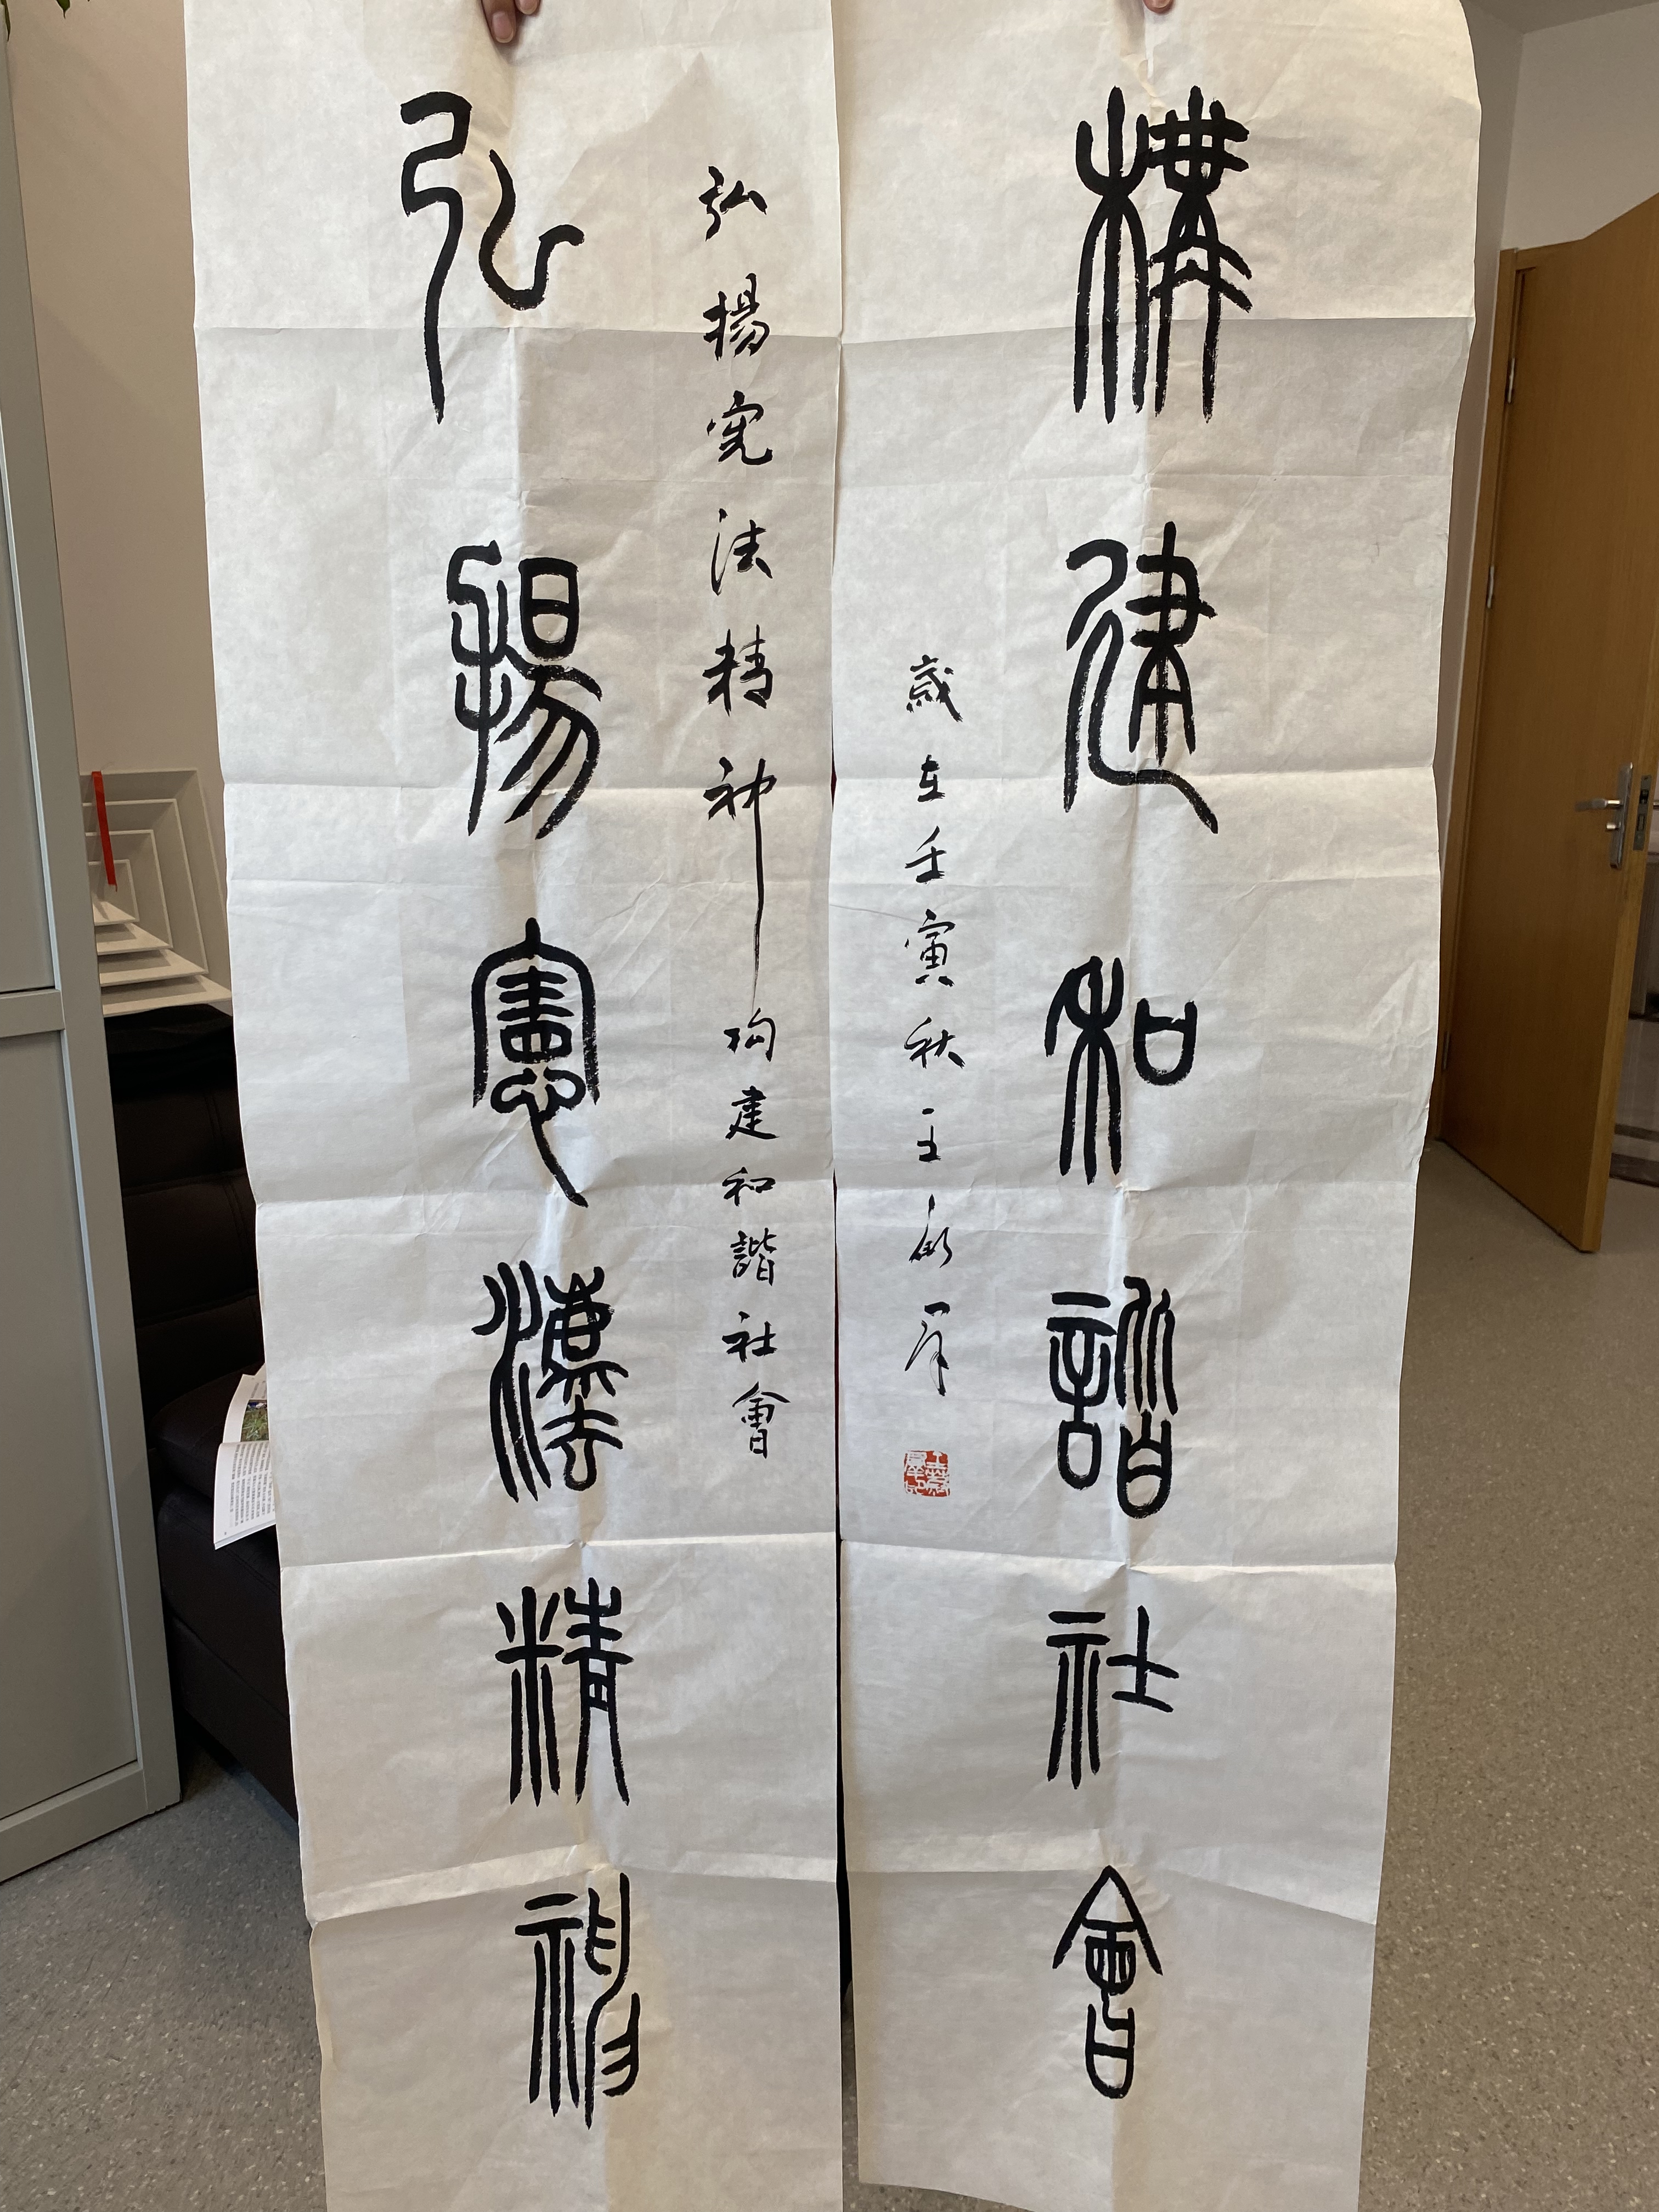 弘揚憲灋精神
弘揚宪法精神构建和諧社會
歲在壬寅秋王
構建和諧社會